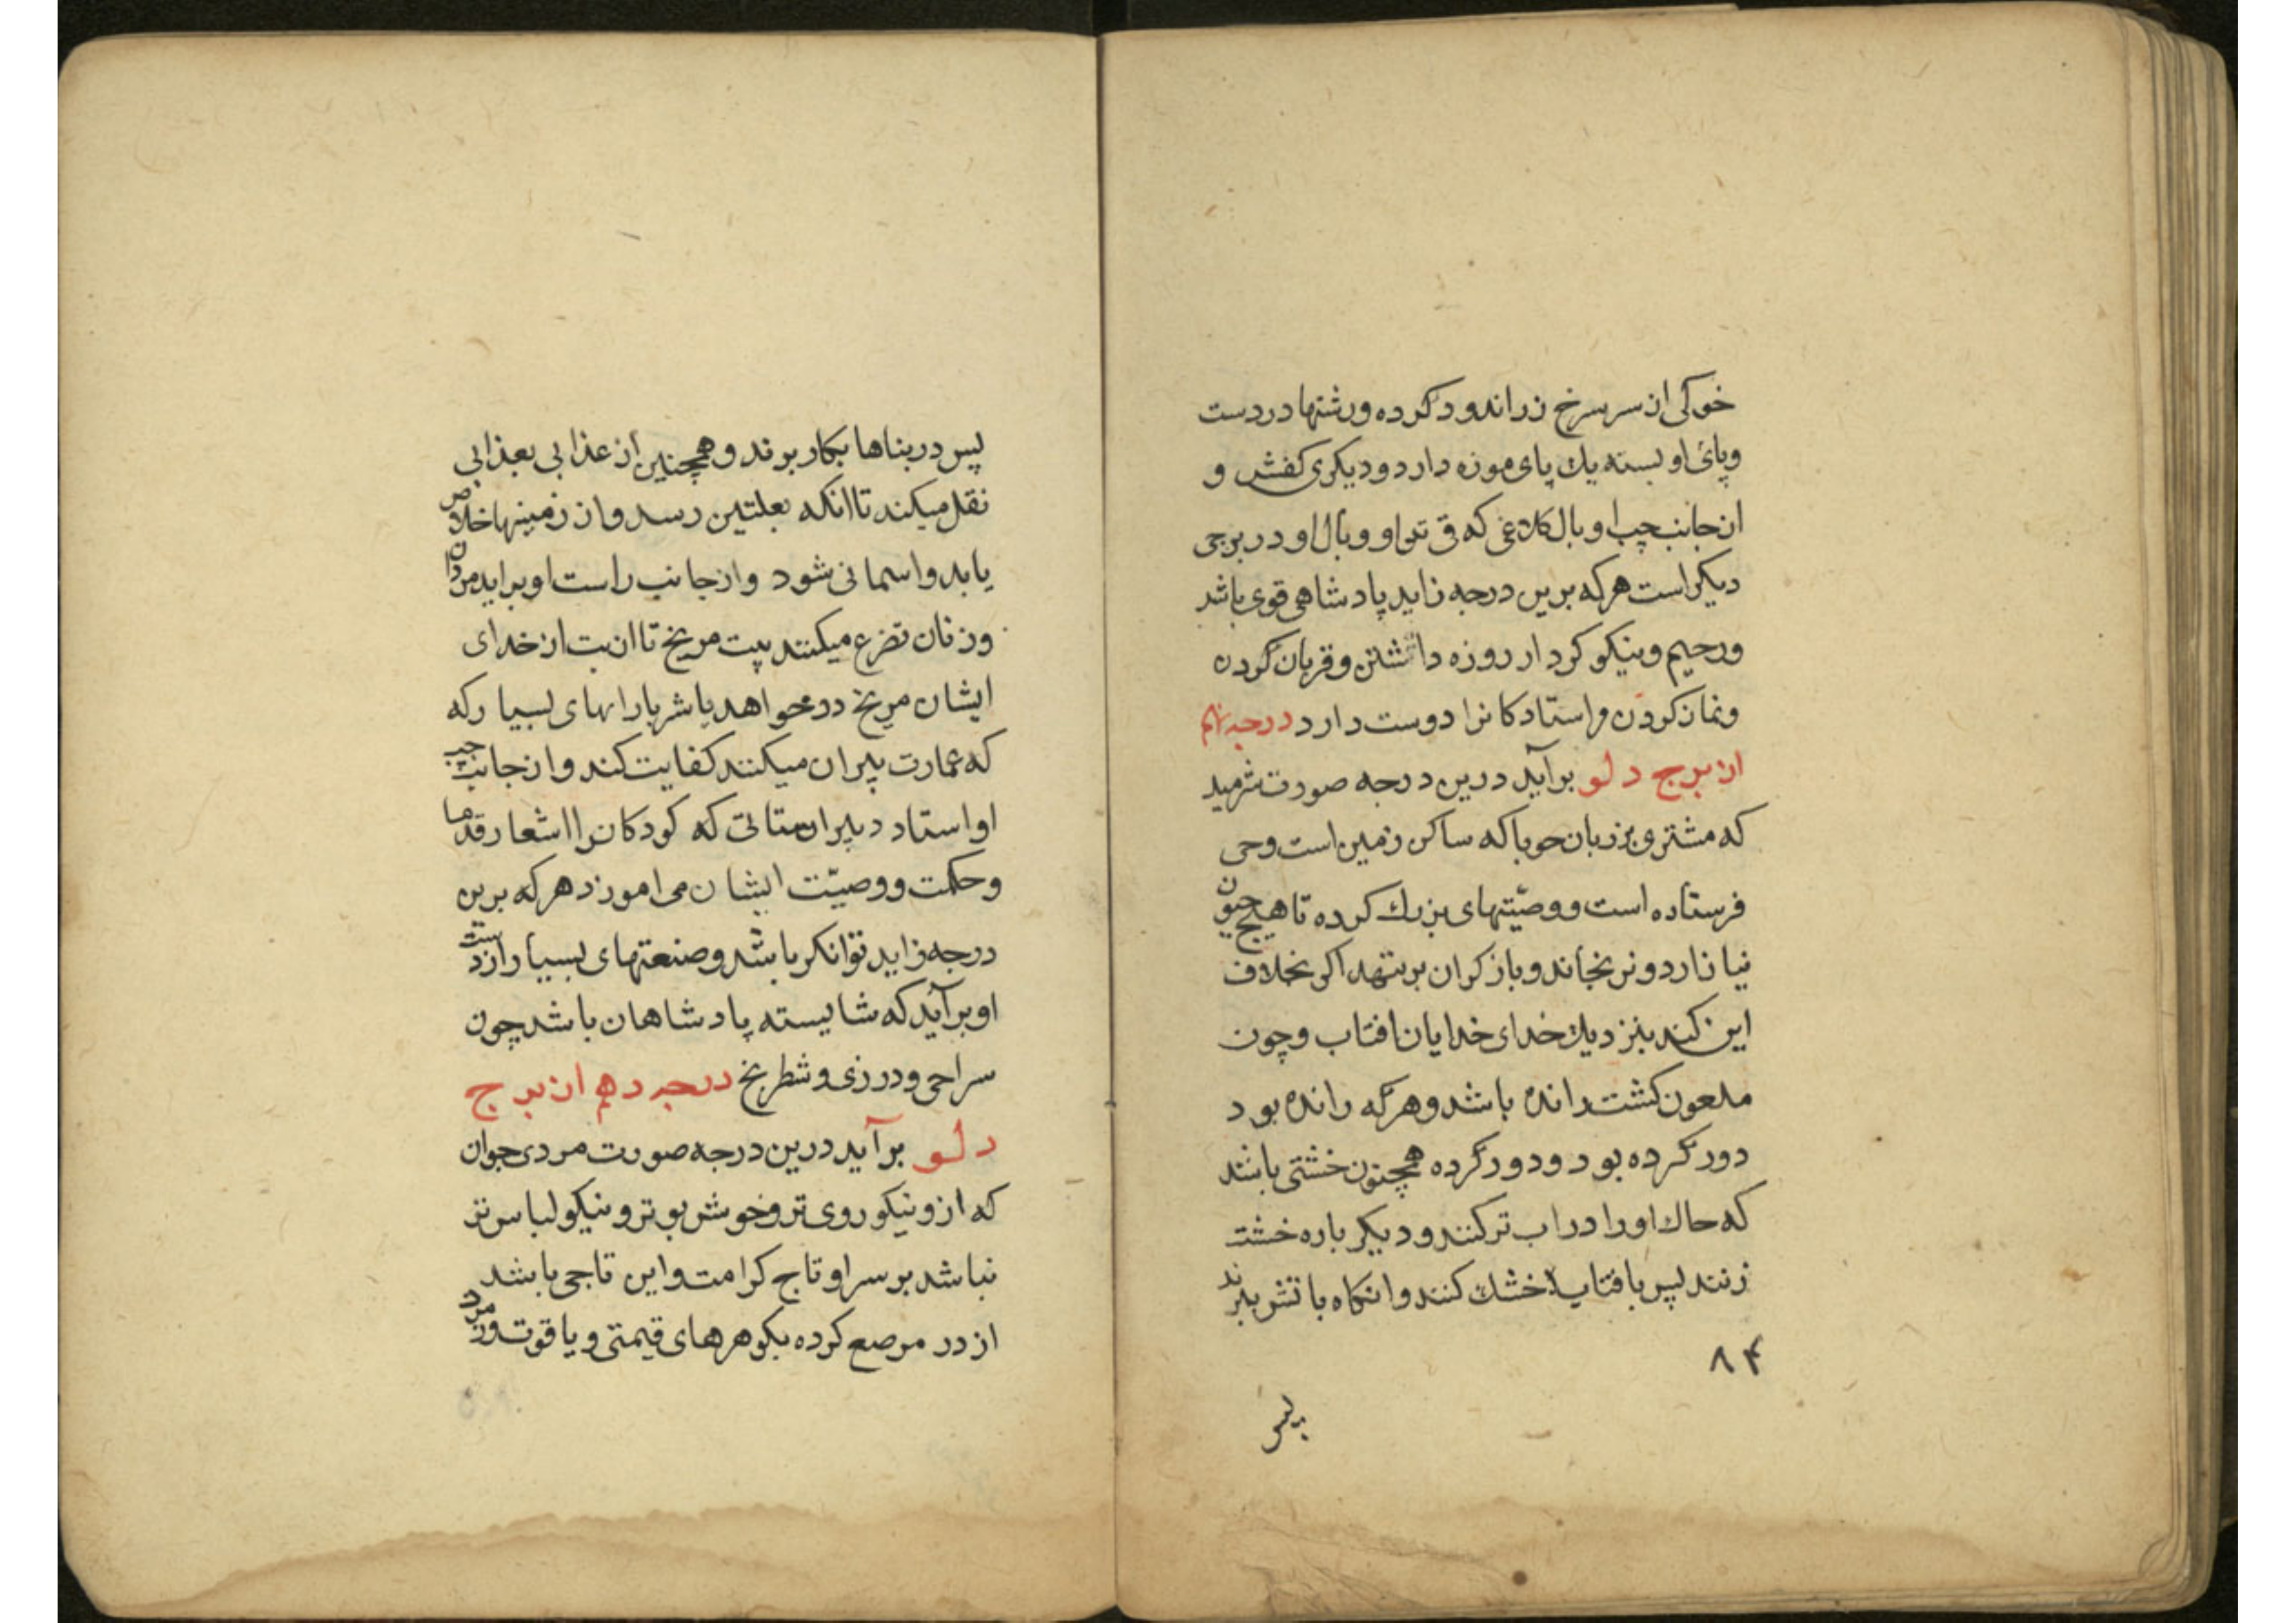 خوکی از سر سرخ زراندود کرده ورشتها در دست
وپای او بسته یك پای موزه دارد ودیکری کفش و
از جانب چپ او بال کلاغی که تو او وبال او در برجی
دیکر است هر که برین درجه زاید پادشاهی قوی باشد
ورحیم ونیکو کردار روزه داشتن وقربان کردن
ونماز کردن واستادکانرا دوست دارد درجه نهم
از برج دلو برآید درین درجه صورت
که مشتری بزبان حوبا که ساکن زمین است وحی
فرستاده است ووصیّتهای بزرك کرده تا هیچ حیون
نیازارد ونرنجاند وباز کران برنتهد اکر بخلاف
این کند بنزدیك خدای خدایان افتاب وچون
ملعون کشت رانده باشد وهرکه رانده بود
دور کرده بود ودور کرده همچنون خشتی باشد
که خاك او را در اب تر کنند ودیکر باره خشت
زنند پس بافتاب خشك کنند وانکاه باتش برند
۸۴
پس
پس در بناها بکار برند وهمچنین از عذابی بعذابی
نقل میکند تا انکه بعلتین رسد واز زمینها خلاص
یابد واسمانی شود واز جانب راست او براید مردان
وزنان تضرع میکنند پیت مریخ تا ان بت از خدای
ایشان مریخ درخواهد باشر بارانهای بسیار که
که عمارت پیران میکنند کفایت کند واز جانب چپ
او استاد دبیرستانی که کودکانرا اشعار قدما
وحکمت ووصیّت ایشان می اموزد هر که برین
درجه زاید توانکر باشد وصنعتهای بسیار از دست
او برآید که شایسته پادشاهان باشد چون
سراجی ودرزی وشطرنج درجه دهم از برج
دلو برآید درین درجه صورت مردی جوان
که ازو نیکو روی تر وخوش بو تر ونیکو لباس تر
نباشد بر سر او تاج کرامت واین تاجی باشد
از در مرصع کرده بکوهرهای قیمتی ویاقوت وزمرد